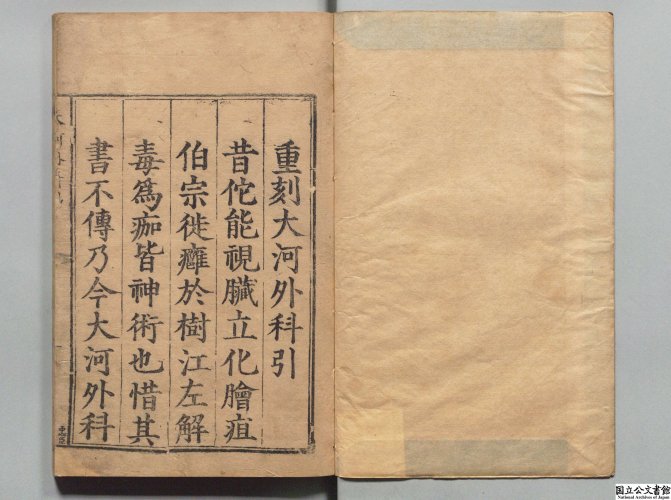 重刻大河外科引
昔佗能視臟立化膾疽
伯宗徙癰於樹江左解
毒為痂皆神術也惜其
書不傳乃今大河外科
国立公文書館
National Archives of Japan